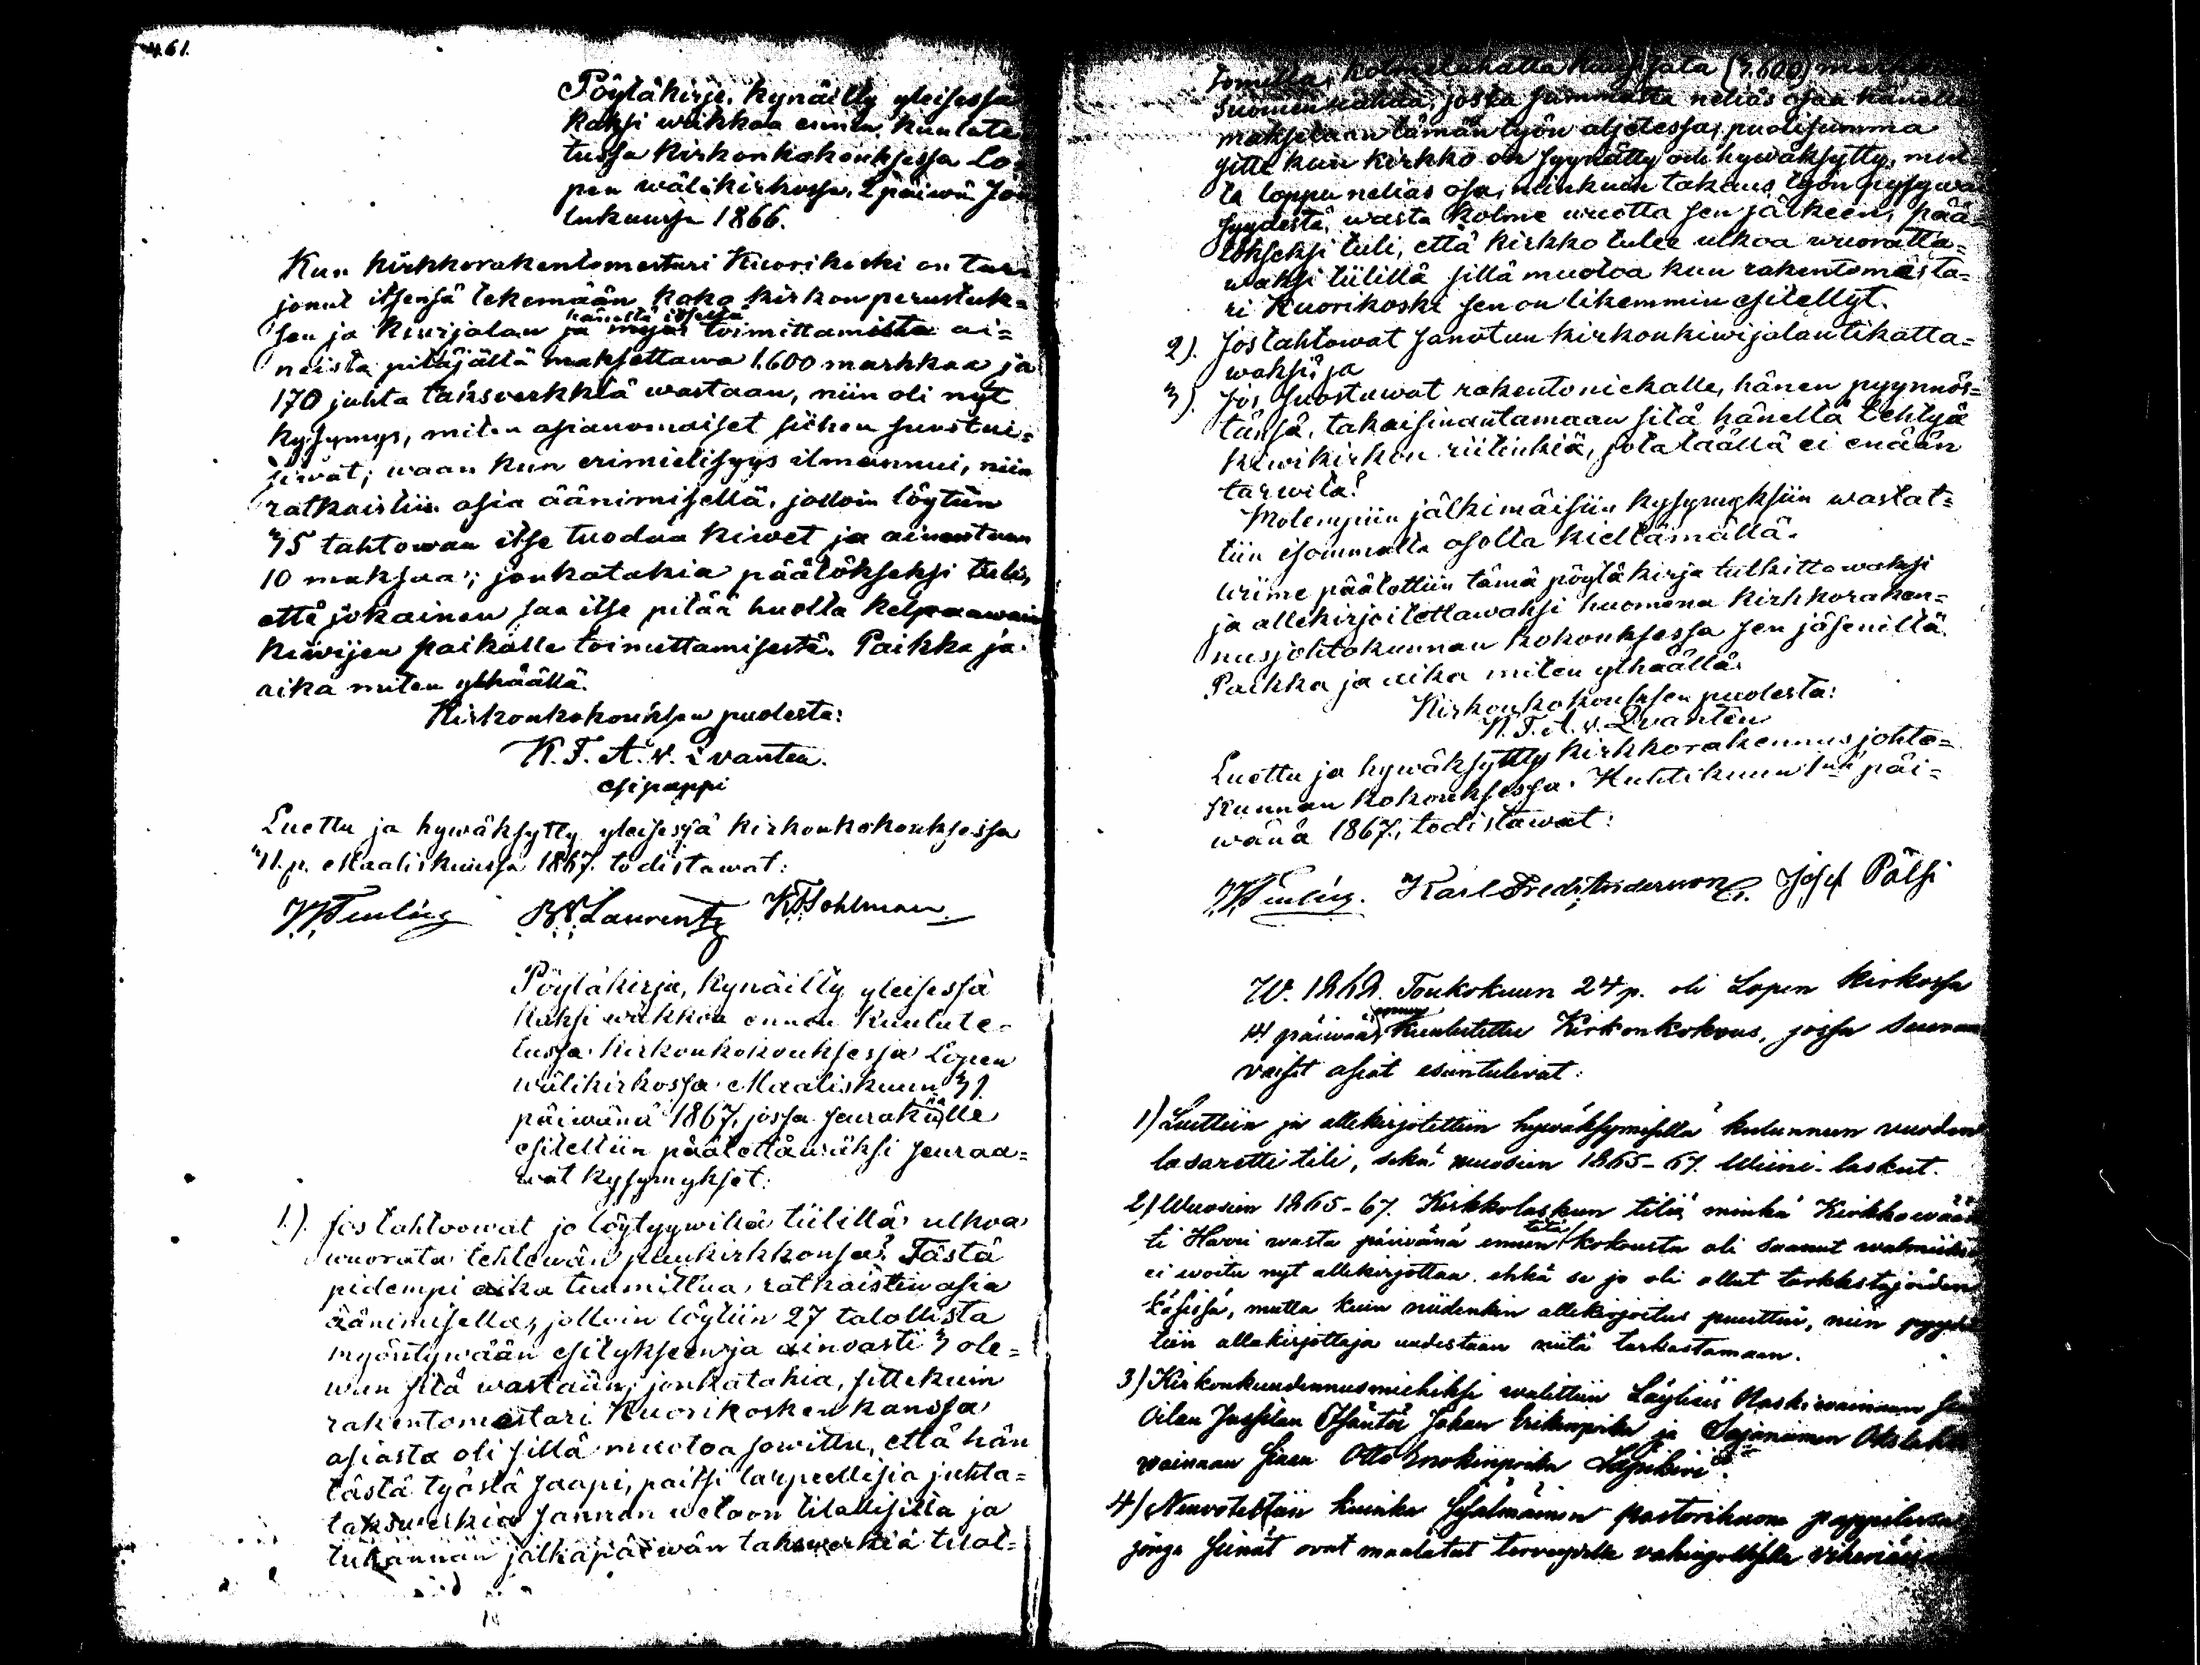 461.
Pöytäkirja, kynäilty yleisessä
kaksi wiikkoa ennen kuulute-
tussa Kirkonkokouksessa Lo-
pen wälikirkossa, 2 päiwä Jou
lukuussa 1866.
Kun kirkkorakentomestari Kuorikoski on tar-
jonut itsensä tekemään koko kirkon perustuk-
sen ja kiwijalan ja hänestä itsestä toimittamista ai-
neista pitäjältä maksettawa 1,600 markkaa ja
170 juhta taksverkkiä wastaan, niin oli nyt
kysymys, miten asianomaiset siihen suostui-
sivat; waan kun erimielisyys ilmannui, niin
ratkaistiin asia äänimisellä, jolloin löytiin
35 tahtowan itse tuodaa kiwet ja ainoastaan
10 maksaa; jonkatakia päätökseksi tuli,
että jokainen saa itse pitää huolta kelpaawain
kiwijen paikalle toimittamisesta. Paikka ja
aika miten ylhäällä.
Kirkonkokouksen puolesta:
K. F. A. v. Qvanten.
esipappi
Luettu ja hywäksytty yleisessä kirkonkokouksessa
31. p. Maaliskuussa 1867. todistawat:
Laurentz K Fohlman
Pöytäkirja, kynäilty yleisessä
kaksi wiikkoa ennen kuulute-
tussa kirkonkokouksessa Lopen
wälikirkossa Maaliskuun 31
päiwänä 1867, jossa seurakunnalle
esiteltiin päätettäwäksi seuraa-
wat kysymykset:
1). Jos tahtoowat jo löytyywillä tiilillä ulkoa
wuorata tehtewän puukirkkonsa? Tästä
pidempi aika tuumittua, ratkaistiin asia
äänimisellä, jolloin löytiin 27 talollista
myöntywään esitykseen ja ainoasti 3 ole-
wan sitä wastaan; jonkatakia, sittekuin
rakentomestari Kuorikosken kanssa
asiasta oli sillä muotoa sowittu, että hän
tästä työstä saapi, paitsi tarpeellisia juhta-
taksverkiä sannan wetoon tilallisilta ja
tukännän jalkapäiwän taksverkiä tilat-
tomilta, kolmetuhatta kuusisataa (3,600) markkaa
Suomen rahaa, josta summasta neliäs osaa hänelle
maksetaan tämän työn aljetessa, puolisumma
sitte kun kirkko on syynätty och hywäksytty, mut-
ta loppu neliäs osa, niinkuin takaus työn pysywä
syydestä, wasta kolme wuotta sen jälkeen, pää-
tökseksi tuli, että kirkko tulee ulkoa wuoratta-
waksi tiilillä sillä muotoa kuu rakentomesta-
ri Kuorikoski sen on likemmin esitellyt.
2). Jos tahtowat sanotun kirkon kiwijalan tikatta-
waksi? ja
3). Jos suostuwat rakentoniekalle, hänen pyynnös-
tänsä, takaisinantamaan sitä hänellä tehtyä
kiwikirkon riitinkiä, jota täällä ei enään
tarwita?
Molempiin jälkimäisiin kysymyksiin wastat-
tiin isommalta osolta kieltämällä.
Wiime päätettiin tämä pöytäkirja tutkittawaksi
ja allekirjoitettawaksi huomena kirkkoraken-
nusjohtokunnan kokouksessa sen jäsenillä.
Paikka ja aika miten ylhäällä.
Kirkonkokouksen puolesta:
K. F. A. v. Qvanten
Luettu ja hywäksytty kirkkorakennusjohto-
kunnan kokouksessa Huhtikuun 1nä päi-
wänä 1867, todistawat:
Karl Fredr Andersson Josef Pälsi
W. 1868. Toukokuun 24 p. oli Lopen kirkossa
14 päiwää ennen kuulutettu Kirkonkokous, jossa seuraa
vaiset asiat esiintulivat:
1) Luettiin ja allekirjoitettiin hywäksymisellä kulunneen vuoden
lasaretti tili, sekä wuosien 1865-67. Wiini-laskut.
2) Wuosien 1865-67. Kirkkolaskun tiliä minkä Kirkkowäär
ti Harri wasta päiwänä ennen tätä kokousta oli saanut walmiiksi
ei woitu nyt allekirjottaa. ehkä se jo oli ollut tarkkstajoiden
käsissä, mutta kuin niidenkin allekirjoitus puuttui, niin pyydet
tiin allekirjottaja uudestaan niitä tarkastamaan.
3) Kirkonkuudennusmieheksi walittiin Läyliäis Raskiwainaan
Oilan Jussilan Isäntä Johan Erikinpoika ja Sajaniemen
wainaan sijaan Otto Enokinpoika
4) Neuvoteltiin kuinka Sisälmäinen pastorihuone pappilassa
jonga seinät ovat maalatut terveydelle vahingollisella viheriäisellä